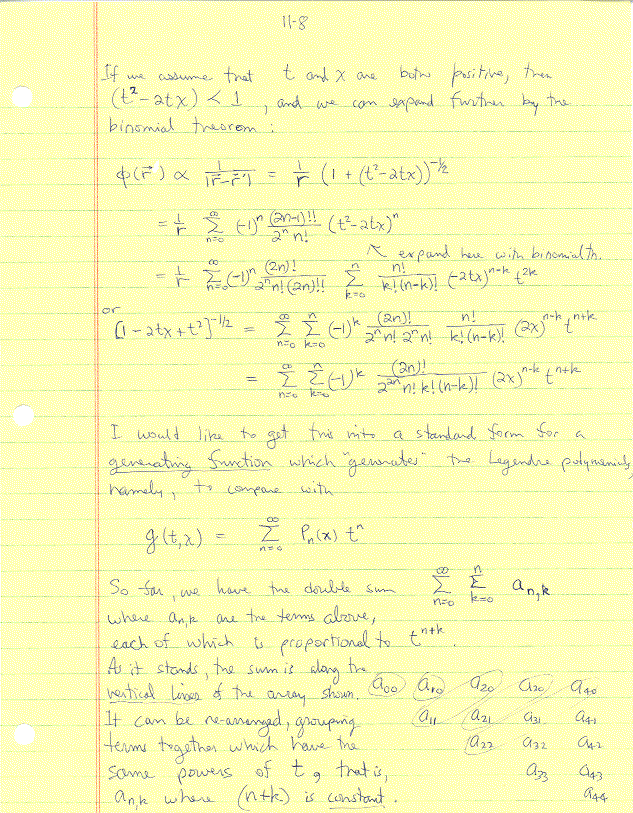 11-8
If we assume that t and x are both positive, then
(t² - 2tx) < 1 , and we can expand further by the
binomial theorem :
ϕ(r⃗) ∝ 1/|r⃗-r⃗'| = 1/r (1 + (t²-2tx))^{-1/2}
= 1/r ∑_{n=0}^{∞} (-1)^n (2n-1)!!/(2^n n!) (t²-2tx)^n
↖ expand here with binomial th.
= 1/r ∑_{n=0}^{∞} (-1)^n (2n)!/(2^n n! (2n)!!) ∑_{k=0}^{n} n!/(k!(n-k)!) (-2tx)^{n-k} t^{2k}
or
[1-2tx+t²]^{-1/2} = ∑_{n=0}^{∞} ∑_{k=0}^{n} (-1)^k (2n)!/(2^n n! 2^n n!) n!/(k!(n-k)!) (2x)^{n-k} t^{n+k}
= ∑_{n=0}^{∞} ∑_{k=0}^{n} (-1)^k (2n)!/(2^{2n} n! k! (n-k)!) (2x)^{n-k} t^{n+k}
I would like to get this into a standard form for a
generating function which "generates" the Legendre polynomials,
namely, to compare with
g(t,x) = ∑_{n=0}^{∞} P_n(x) t^n
So far, we have the double sum ∑_{n=0}^{∞} ∑_{k=0}^{n} a_{n,k}
where a_{n,k} are the terms above,
each of which is proportional to t^{n+k}.
As it stands, the sum is along the
vertical lines of the array shown. a_{00} a_{10} a_{20} a_{30} a_{40}
It can be re-arranged, grouping a_{11} a_{21} a_{31} a_{41}
terms together which have the a_{22} a_{32} a_{42}
same powers of t, that is, a_{33} a_{43}
a_{n,k} where (n+k) is constant. a_{44}